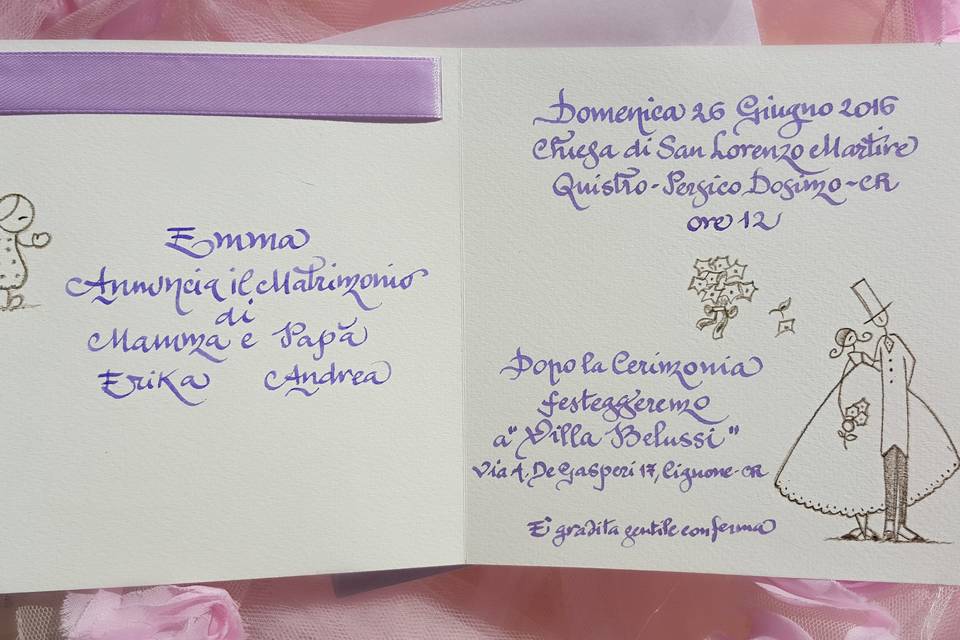 Emma
Annuncia il Matrimonio
di
Mamma e Papà
Erika Andrea
Domenica 26 Giugno 2016
Chiesa di San Lorenzo Martire
Quistro - Persico Dosimo - CR
ore 12
Dopo la Cerimonia
festeggeremo
a "Villa Belussi"
Via A. De Gasperi 17, Cignone - CR
E' gradita gentile conferma